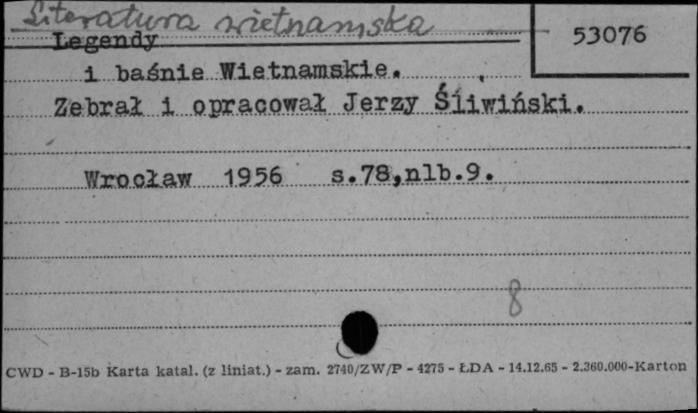 Literatura wietnamska
53076
Legendy
i baśnie Wietnamskie.
Zebrał i opracował Jerzy Śliwiński.
Wrocław 1956 s.78,nlb.9.
8
CWD - B-15b Karta katal. (z liniat.) - zam. 2740/ZW/P - 4275 - ŁDA - 14.12.65 - 2.360.000-Karton